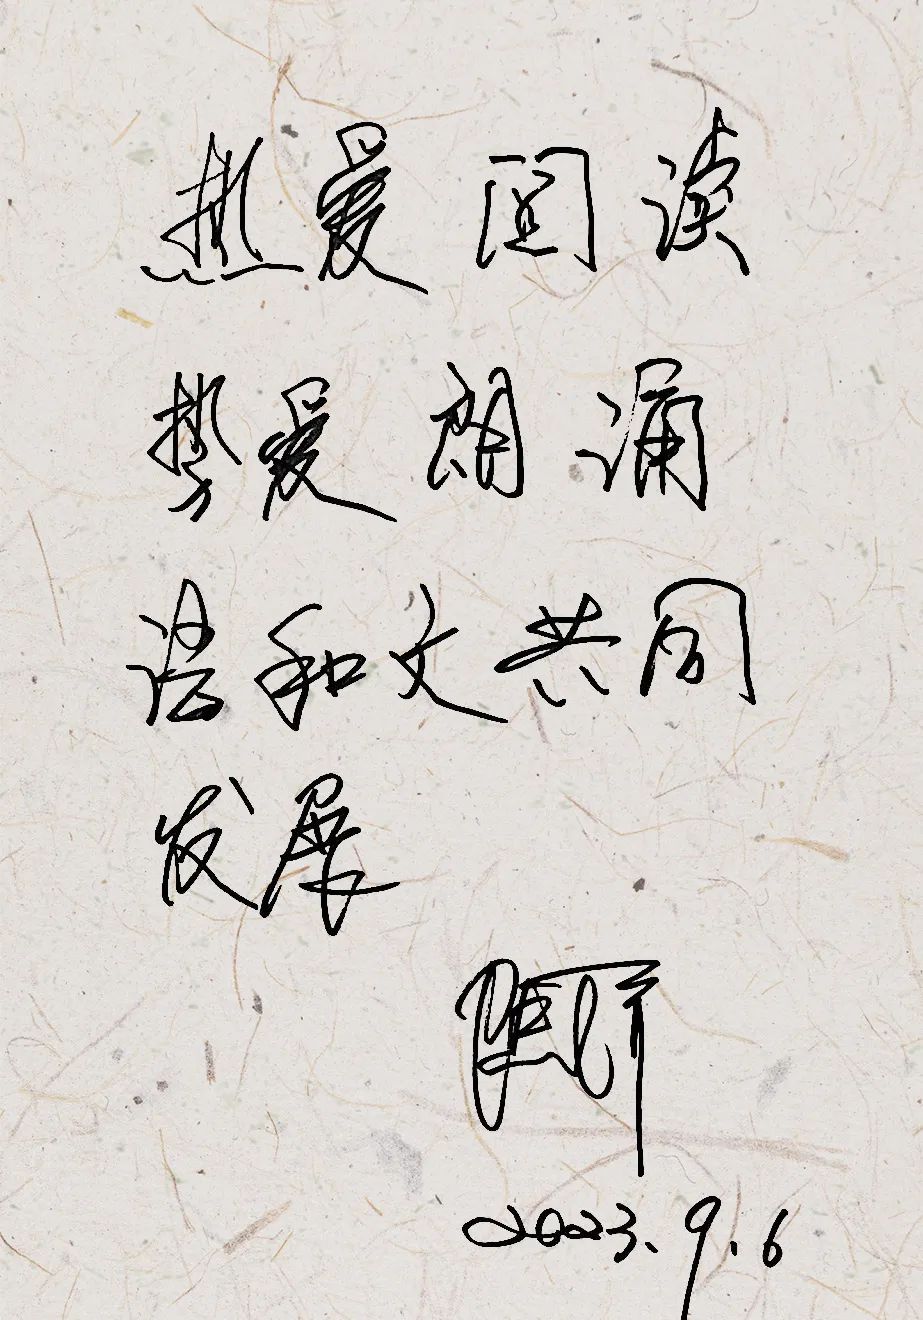 热爱阅读
热爱朗诵
语和文共同
发展
2023.9.6